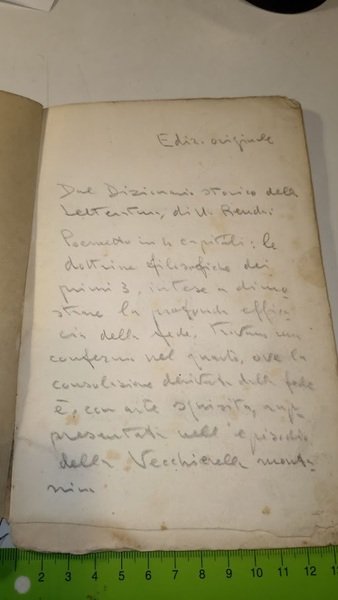 Ediz. originale
Dal Dizionario storico della
Letteratura, di U. Renda:
Poemetto in 4 capitoli: le
dottrine filosofiche dei
primi 3, intese a dimo
strare la profonda effica
cia della fede, trovano
conferma nel quarto, ove la
consolazione derivata dalla fede
è, con arte squisita, rap
presentata nell'episodio
della Vecchierella monta
nina
2 3 4 5 6 7 8 9 10 11 12 13